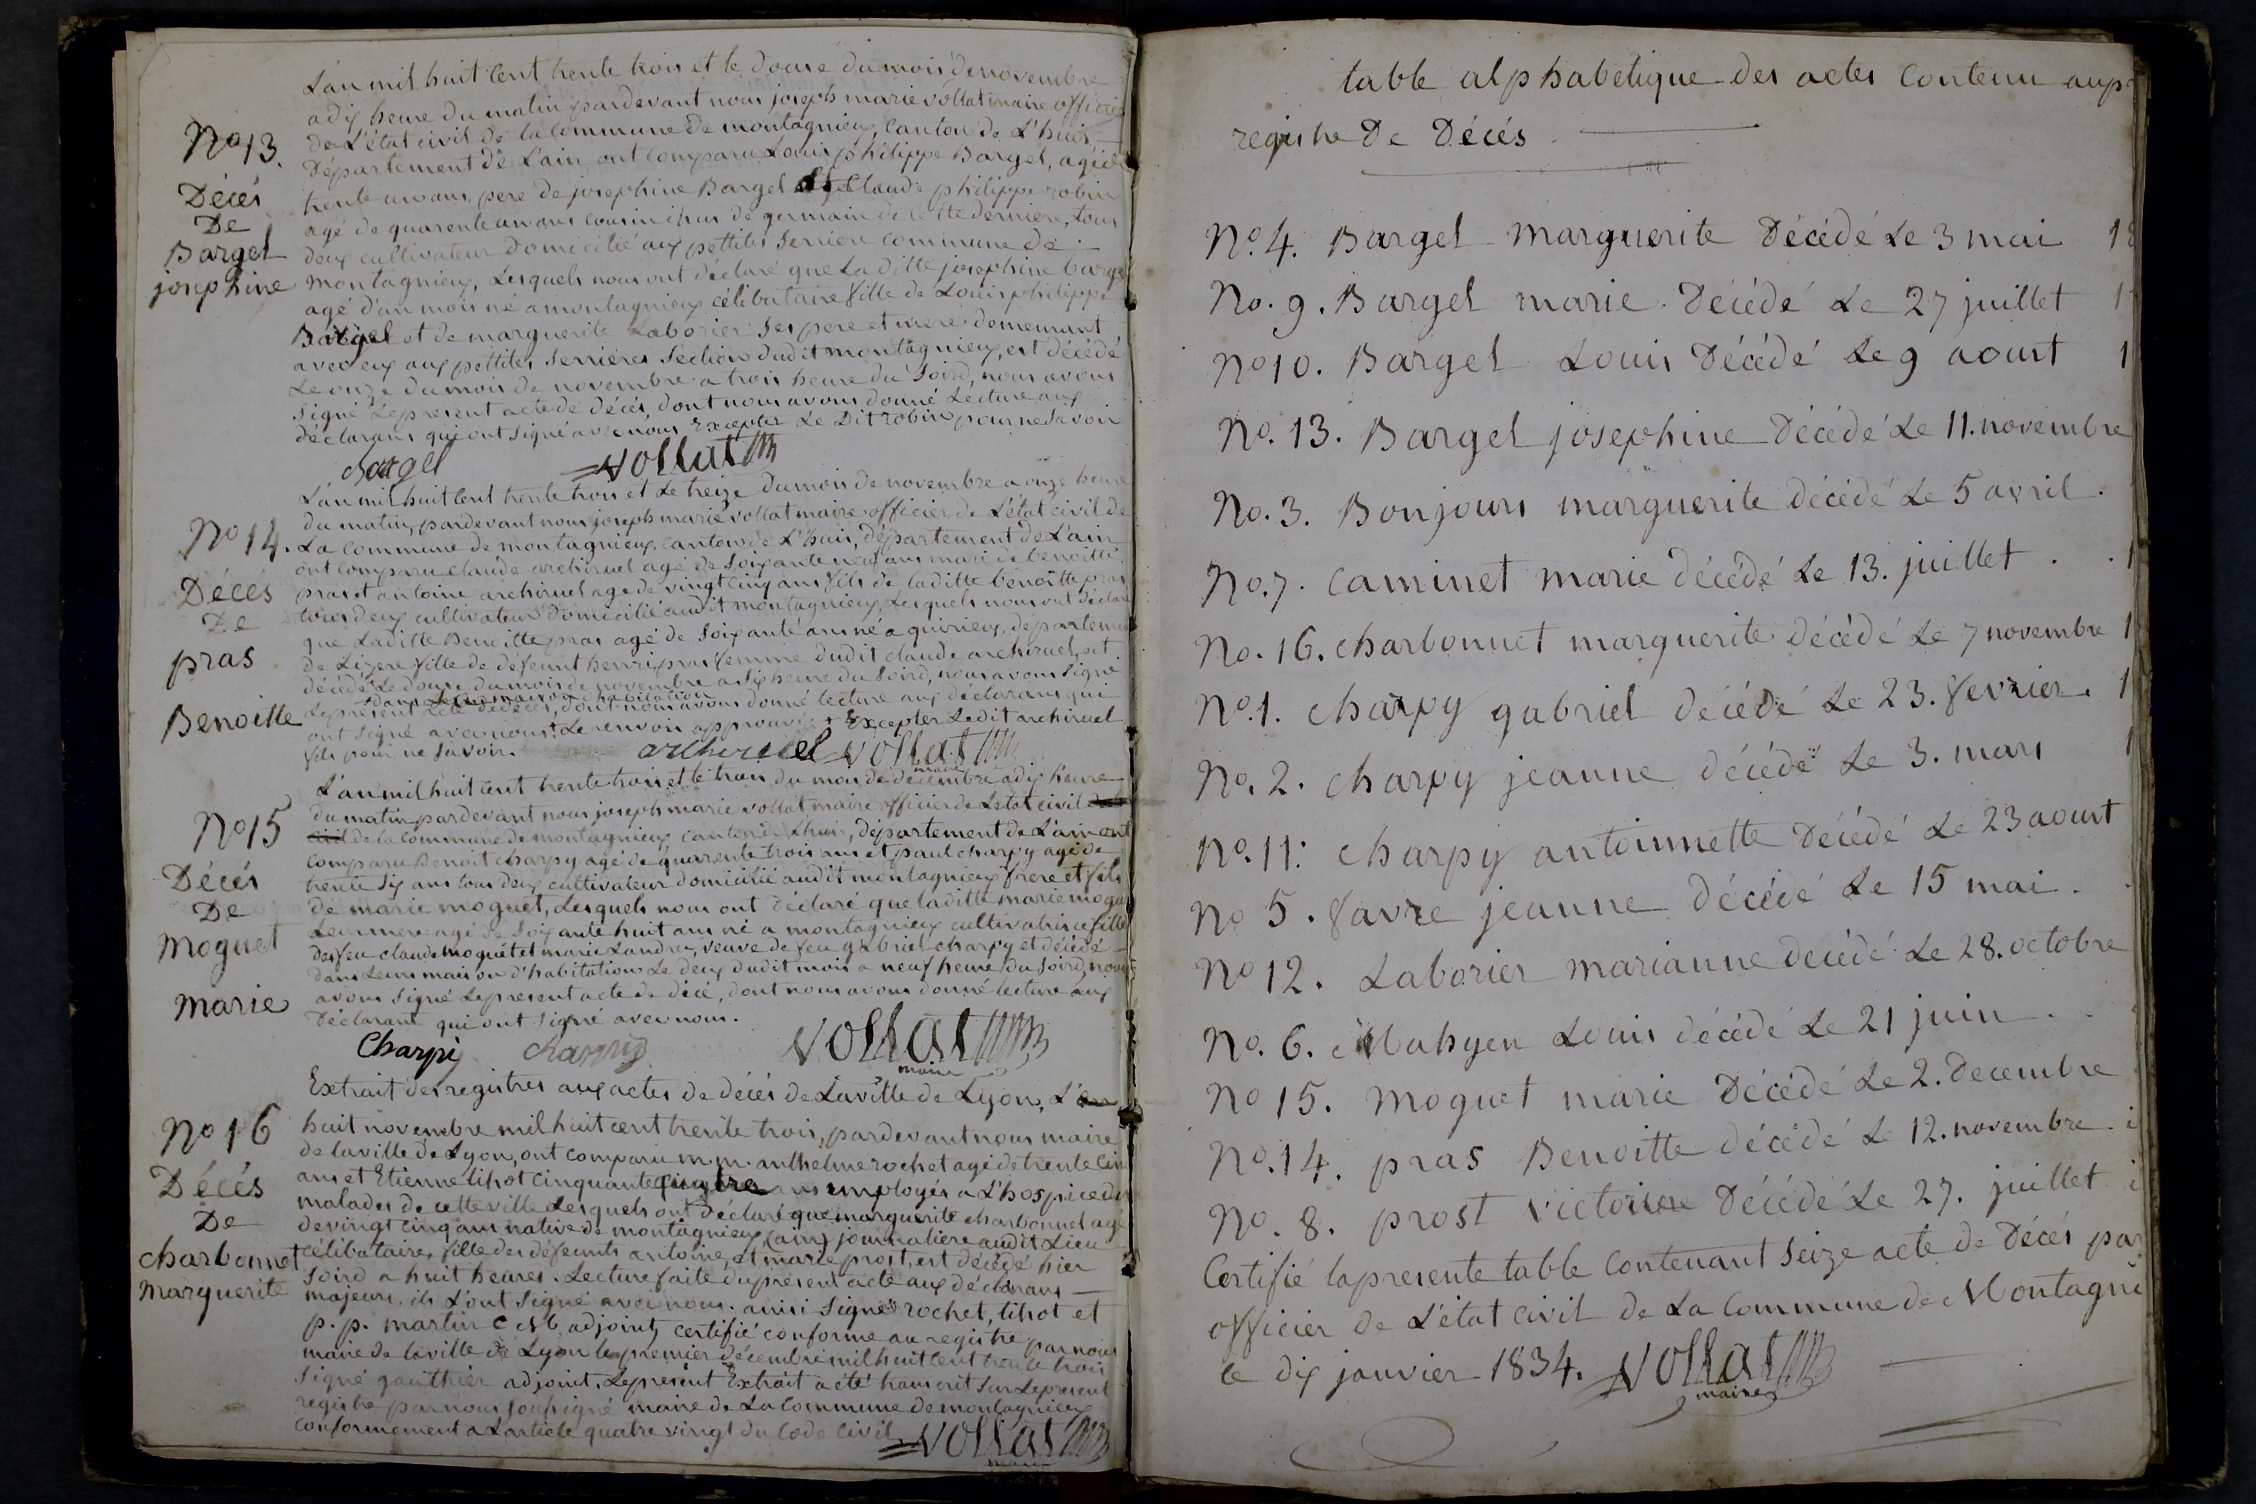 L'an mil huit cent trente trois et le douse du mois de novembre
a dix heure du matin pardevant nous joseph marie vollat maire officier
de L'état civil de la commune de montagnieux, canton de L'huis,
Département de L'ain ont comparu Louis philippe Bargel, agé de
trente un ans, pere de josephine Bargel et claude philippe robin
agé de quarente un ans cousin issus de germain de cette derniere, tous
deux cultivateur domicilié aux pettites Serriere commune de
montagnieux, Lesquels nous ont déclaré que La ditte josephine barge
agé d'un mois né a montagnieux célibataire fille de Louis philippe
Bargel et de marguerite Laborier Ses pere et mere demeurant
avec eux aux pettites Serrieres Section dudit montagnieux, est décédé
Le onze du mois de novembre a trois heure du Soird, nous avons
Signé Le present acte de décès, dont nous avons donné Lecture aux
déclarans qui ont Signé avec nous Excepter Le Dit robin pour ne Savoir
No 13.
Décés
De
Bargel
josephine
bargel vollat
L'an mil huit cent trente trois et Le treize du mois de novembre a onze heure
du matin, pardevant nous joseph marie vollat maire officier de L'état civil de
La commune de montagnieux, canton de L'huis, département de L'ain
ont comparu claude archiruel agé de Soixante neuf ans mari de benoitte
pras et antoine archiruel agé de vingt cinq ans fils de la ditte benoitte pras
tous deux cultivateur domicilié audit montagnieux, Lesquels nous ont déclaré
que Laditte Benoitte pras agé de Soixante ans né a quirieux, departeme
de Lizere fille de défeunt henri pras femme dudit claude archiruel, est
décédé Le douse du mois de novembre a six heure du Soird, nous avons Signé
dans Leur maison d'habitation
Le present acte de décés, dont nous avons donné lecture aux déclarans qui
ont Signé avec nous. Le renvoi approuvé + Excepter Ledit archiruel
fils pour ne Savoir.
No 14.
Décés
De
pras
Benoitte
archiruel vollat
maire
L'an mil huit cent trente trois et le trois du mois de décembre a dix heure
du matin pardevant nous joseph marie vollat maire officier de Letat civil de la
civil de la commune de montagnieux, canton de L'huis, département de L'ain ont
comparu Benoit charpy agé de quarente trois ans et paul charpy agé de
trente six ans tous deux cultivateur domicilié audit montagnieux frere et fils
de marie moguet, Lesquels nous ont déclaré que laditte marie mogu
Leur mere agé de Soixante huit ans né a montagnieux cultivatrice fille
des feu claude moguet et marie Landru, veuve de feu gabriel charpy et décédé
dans Leurs maison d'habitation Le deux dudit mois a neuf heure du Soird, nous
avons Signé Le present acte de décé, dont nous avons donné lecture aux
Déclarant qui ont Signé avec nous.
No 15
Décés
De
moguet
marie
Charpi charpy vollat
maire
Extrait des registres aux actes de décés de La ville de Lyon, L'an
huit novembre mil huit cent trente trois, pardevant nous maire
de la ville de Lyon, ont comparu m.m. anthelme rochet agé de trente cin
ans et Etienne tihot cinquante quatre ans employés a L'hospice des
malades de cette ville Lesquels ont déclaré que marguerite charbonnet agé
de vingt cinq ans native de montagnieux (ain) journaliere audit Lieu
célibataire, fille des défeunts antoine, et marie prost, est décédé hier
Soird a huit heures. Lecture faite du présent acte aux déclarans
majeurs, ils L'ont Signé avec nous. ainsi Signés rochet, tihot et
p. p. martin adjoint, certifié conforme au registre par nous
maire de la ville de Lyon le premier décembre mil huit cent trente trois
Signé gauthier adjoint. Le présent Extrait a été transcrit Sur Le present
registre par nous Sousigné maire de La commune de montagnieux
conformement a L'article quatre vingt du Code Civil
No 16
Décés
De
charbonnet
Marguerite
vollat
maire
table alphabétique des actes contenu aup
registre De Décés
No. 4. Bargel marguerite Décédé Le 3 mai 18
No. 9. Bargel marie Décédé Le 27 juillet 1
No 10. Bargel Louis Décédé Le 9 aoust 1
No. 13. Bargel josephine Décédé Le 11. novembre
No. 3. Bonjours marguerite décédé Le 5 avril.
No. 7. caminet marie décédé Le 13. juillet . . 1
No. 16. charbonnet marguerite décédé Le 7 novembre 1
No. 1. charpy gabriel décédé Le 23. fevrier. 1
No. 2. charpy jeanne décédé Le 3. mars 1
No. 11. charpy antoinnette Décédé Le 23 aoust
No 5. favre jeanne Décédé Le 15 mai.
No 12. Laborier marianne décédé Le 28. octobre
No. 6. Mahyen Louis décédé Le 21 juin
No 15. moguet marie Décédé Le 2. Decembre
No. 14. pras Benoitte décédé Le 12. novembre. i
No. 8. prost victoire Décédé Le 27. juillet i
Certifié la presente table contenant Seize acte de Décés par
officier de L'état civil de La commune de Montagni
le dix janvier 1834. vollat
maire